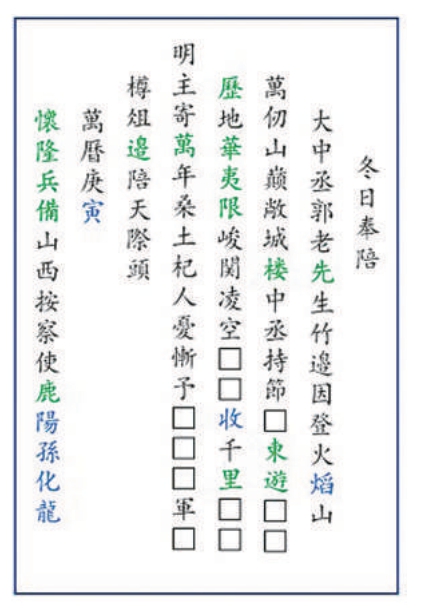 冬日奉陪
大中丞郭老先生竹邊因登火焰山
萬仞山巔敞城楼中丞持節□東遊□□
歷地華夷限峻関凌空□□收千里□□
明主寄萬年桑土杞人憂慚予□□□軍□
樽俎邉陪天際頭
萬曆庚寅
懷隆兵備山西按察使鹿陽孫化龍